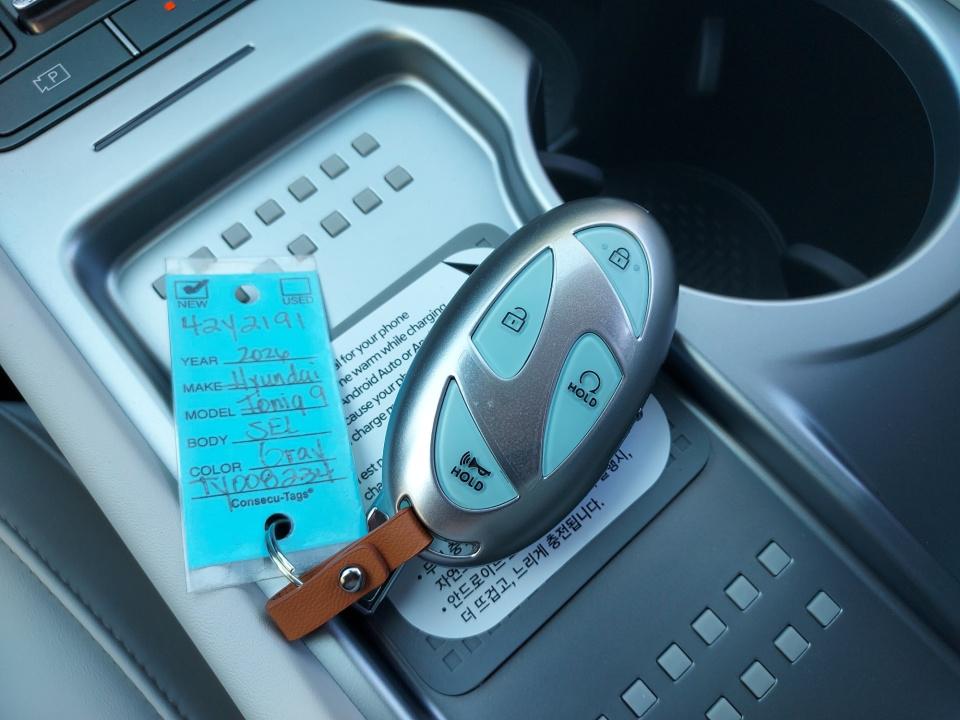 P
NEW
USED
42Y2191
YEAR 2026
MAKE Hyundai
MODEL Ioniq 9
BODY SEL
COLOR Gray
TY008234
Consecu-Tags®
HOLD
HOLD
for your phone
warm while charging
Android Auto or
cause your
charge
est
안드로이드
더 뜨겁고, 느리게 충전됩니다.